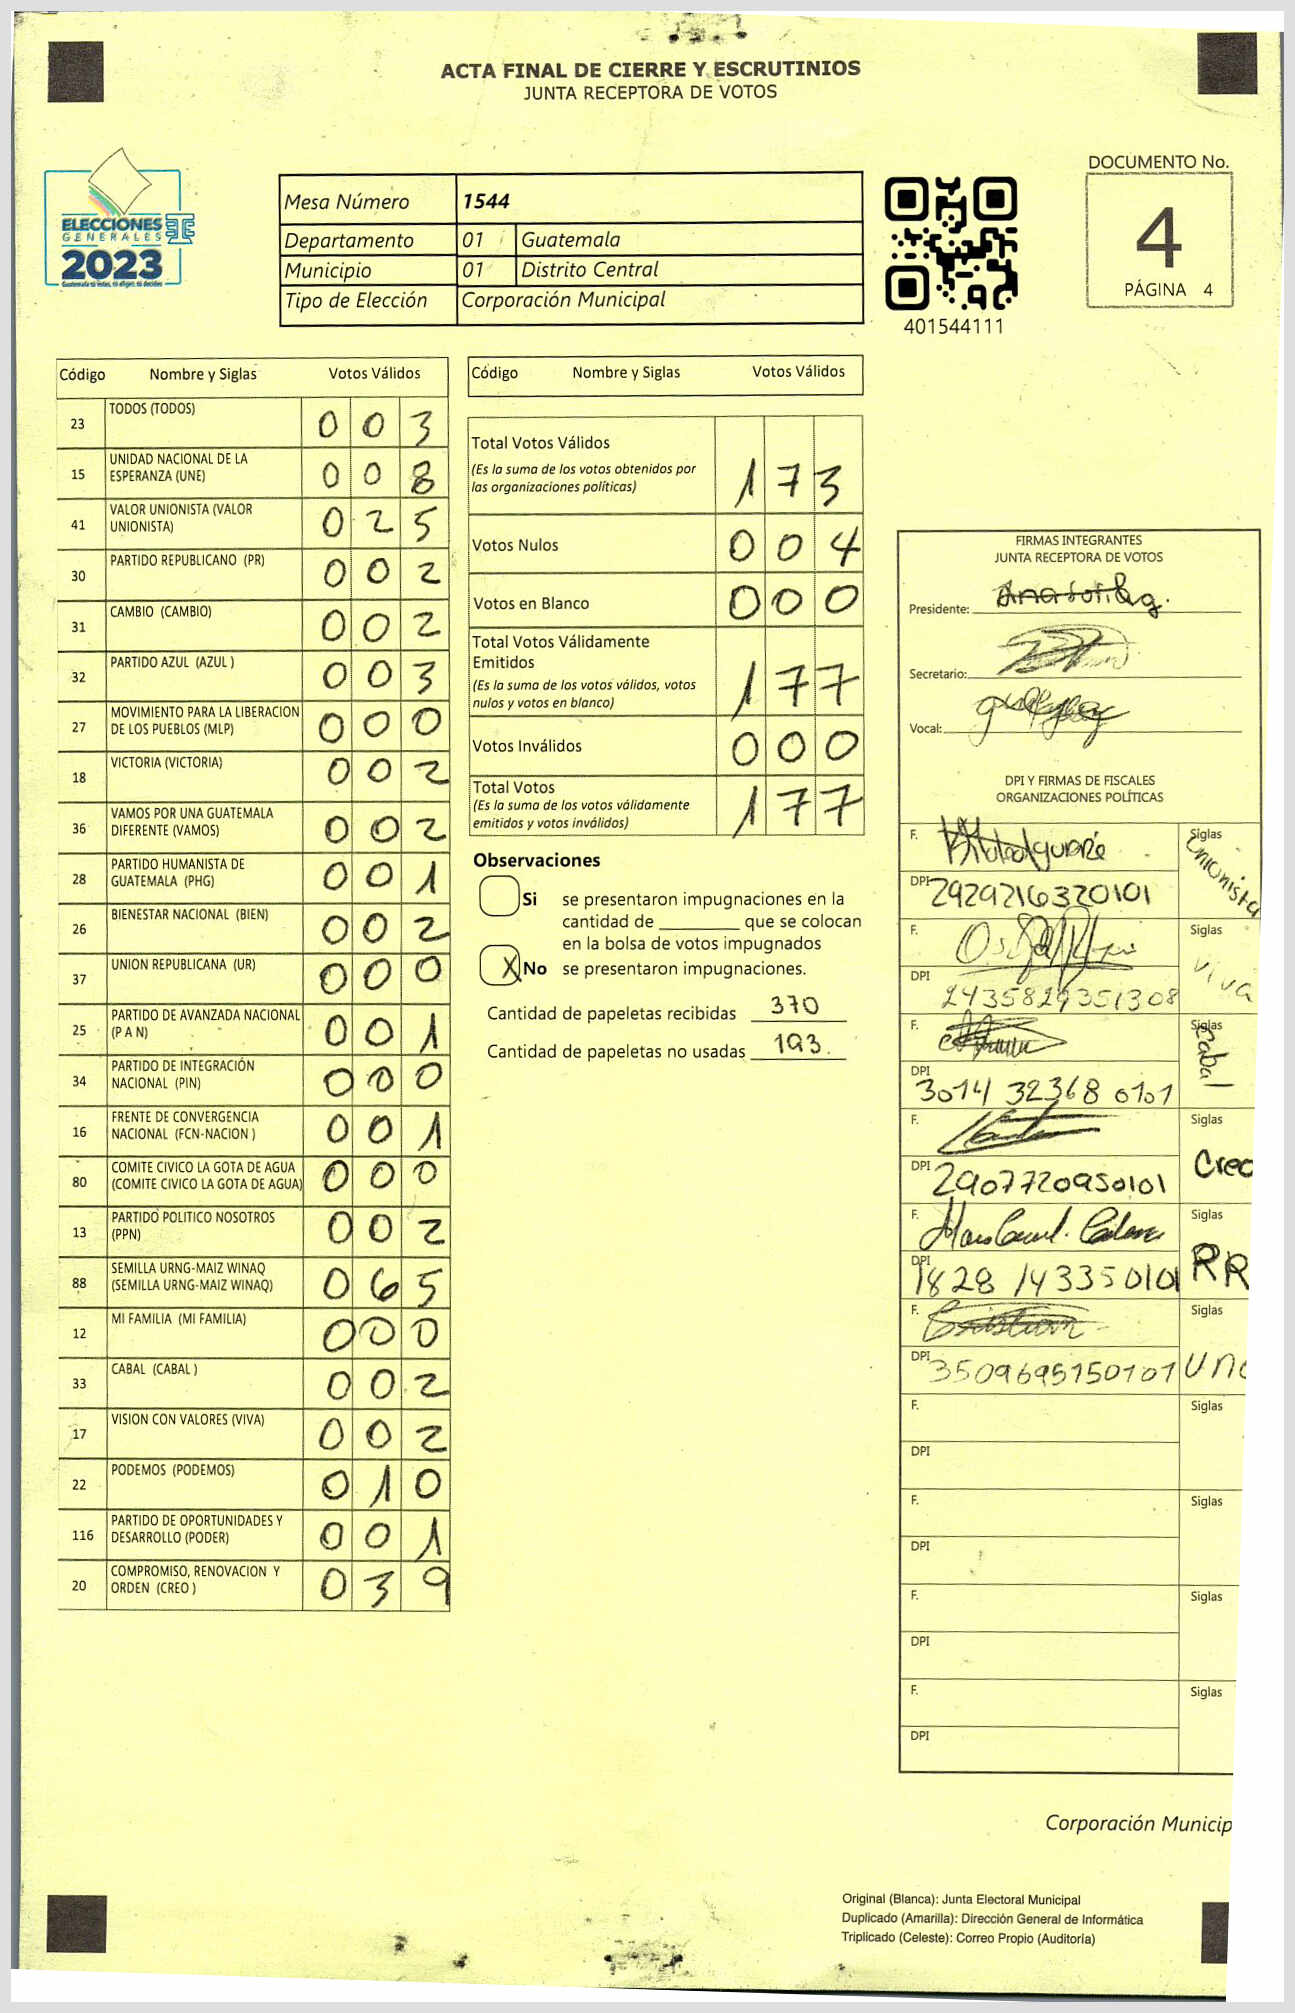 ACTA FINAL DE CIERRE Y ESCRUTINIOS
JUNTA RECEPTORA DE VOTOS
ELECCIONES
GENERALES
2023
Mesa Número 1544
Departamento 01 Guatemala
Municipio 01 Distrito Central
Tipo de Elección Corporación Municipal
401544111
DOCUMENTO No.
4
PÁGINA 4
Código Nombre y Siglas Votos Válidos
23 TODOS (TODOS) 0 0 3
15 UNIDAD NACIONAL DE LA
ESPERANZA (UNE) 0 0 8
41 VALOR UNIONISTA (VALOR
UNIONISTA) 0 2 5
30 PARTIDO REPUBLICANO (PR) 0 0 2
31 CAMBIO (CAMBIO) 0 0 2
32 PARTIDO AZUL (AZUL ) 0 0 3
27 MOVIMIENTO PARA LA LIBERACION
DE LOS PUEBLOS (MLP) 0 0 0
18 VICTORIA (VICTORIA) 0 0 2
36 VAMOS POR UNA GUATEMALA
DIFERENTE (VAMOS) 0 0 2
28 PARTIDO HUMANISTA DE
GUATEMALA (PHG) 0 0 1
26 BIENESTAR NACIONAL (BIEN) 0 0 2
37 UNION REPUBLICANA (UR) 0 0 0
25 PARTIDO DE AVANZADA NACIONAL
(P A N) 0 0 1
34 PARTIDO DE INTEGRACIÓN
NACIONAL (PIN) 0 0 0
16 FRENTE DE CONVERGENCIA
NACIONAL (FCN-NACION ) 0 0 1
80 COMITE CIVICO LA GOTA DE AGUA
(COMITE CIVICO LA GOTA DE AGUA) 0 0 0
13 PARTIDO POLITICO NOSOTROS
(PPN) 0 0 2
88 SEMILLA URNG-MAIZ WINAQ
(SEMILLA URNG-MAIZ WINAQ) 0 6 5
12 MI FAMILIA (MI FAMILIA) 0 0 0
33 CABAL (CABAL ) 0 0 2
17 VISION CON VALORES (VIVA) 0 0 2
22 PODEMOS (PODEMOS) 0 1 0
116 PARTIDO DE OPORTUNIDADES Y
DESARROLLO (PODER) 0 0 1
20 COMPROMISO, RENOVACION Y
ORDEN (CREO ) 0 3 9
Código Nombre y Siglas Votos Válidos
Total Votos Válidos
(Es la suma de los votos obtenidos por
las organizaciones políticas) 1 7 3
Votos Nulos 0 0 4
Votos en Blanco 0 0 0
Total Votos Válidamente
Emitidos
(Es la suma de los votos válidos, votos
nulos y votos en blanco) 1 7 7
Votos Inválidos 0 0 0
Total Votos
(Es la suma de los votos válidamente
emitidos y votos inválidos) 1 7 7
Observaciones
Si se presentaron impugnaciones en la
cantidad de ________ que se colocan
en la bolsa de votos impugnados
X No se presentaron impugnaciones.
Cantidad de papeletas recibidas 370
Cantidad de papeletas no usadas 193.
FIRMAS INTEGRANTES
JUNTA RECEPTORA DE VOTOS
Presidente:
Secretario:
Vocal:
DPI Y FIRMAS DE FISCALES
ORGANIZACIONES POLÍTICAS
F. Siglas Unionista
DPI 2929216320101
F. Siglas Viva
DPI 2435829351308
F. Siglas Cabal
DPI 3014 32368 0101
F. Siglas Creo
DPI 2907720950101
F. Siglas RR
DPI 1828 143350101
F. Siglas
DPI 3509695150101
F. Siglas
DPI
F. Siglas
DPI
F. Siglas
DPI
F. Siglas
DPI
Corporación Municip
Original (Blanca): Junta Electoral Municipal
Duplicado (Amarilla): Dirección General de Informática
Triplicado (Celeste): Correo Propio (Auditoría)